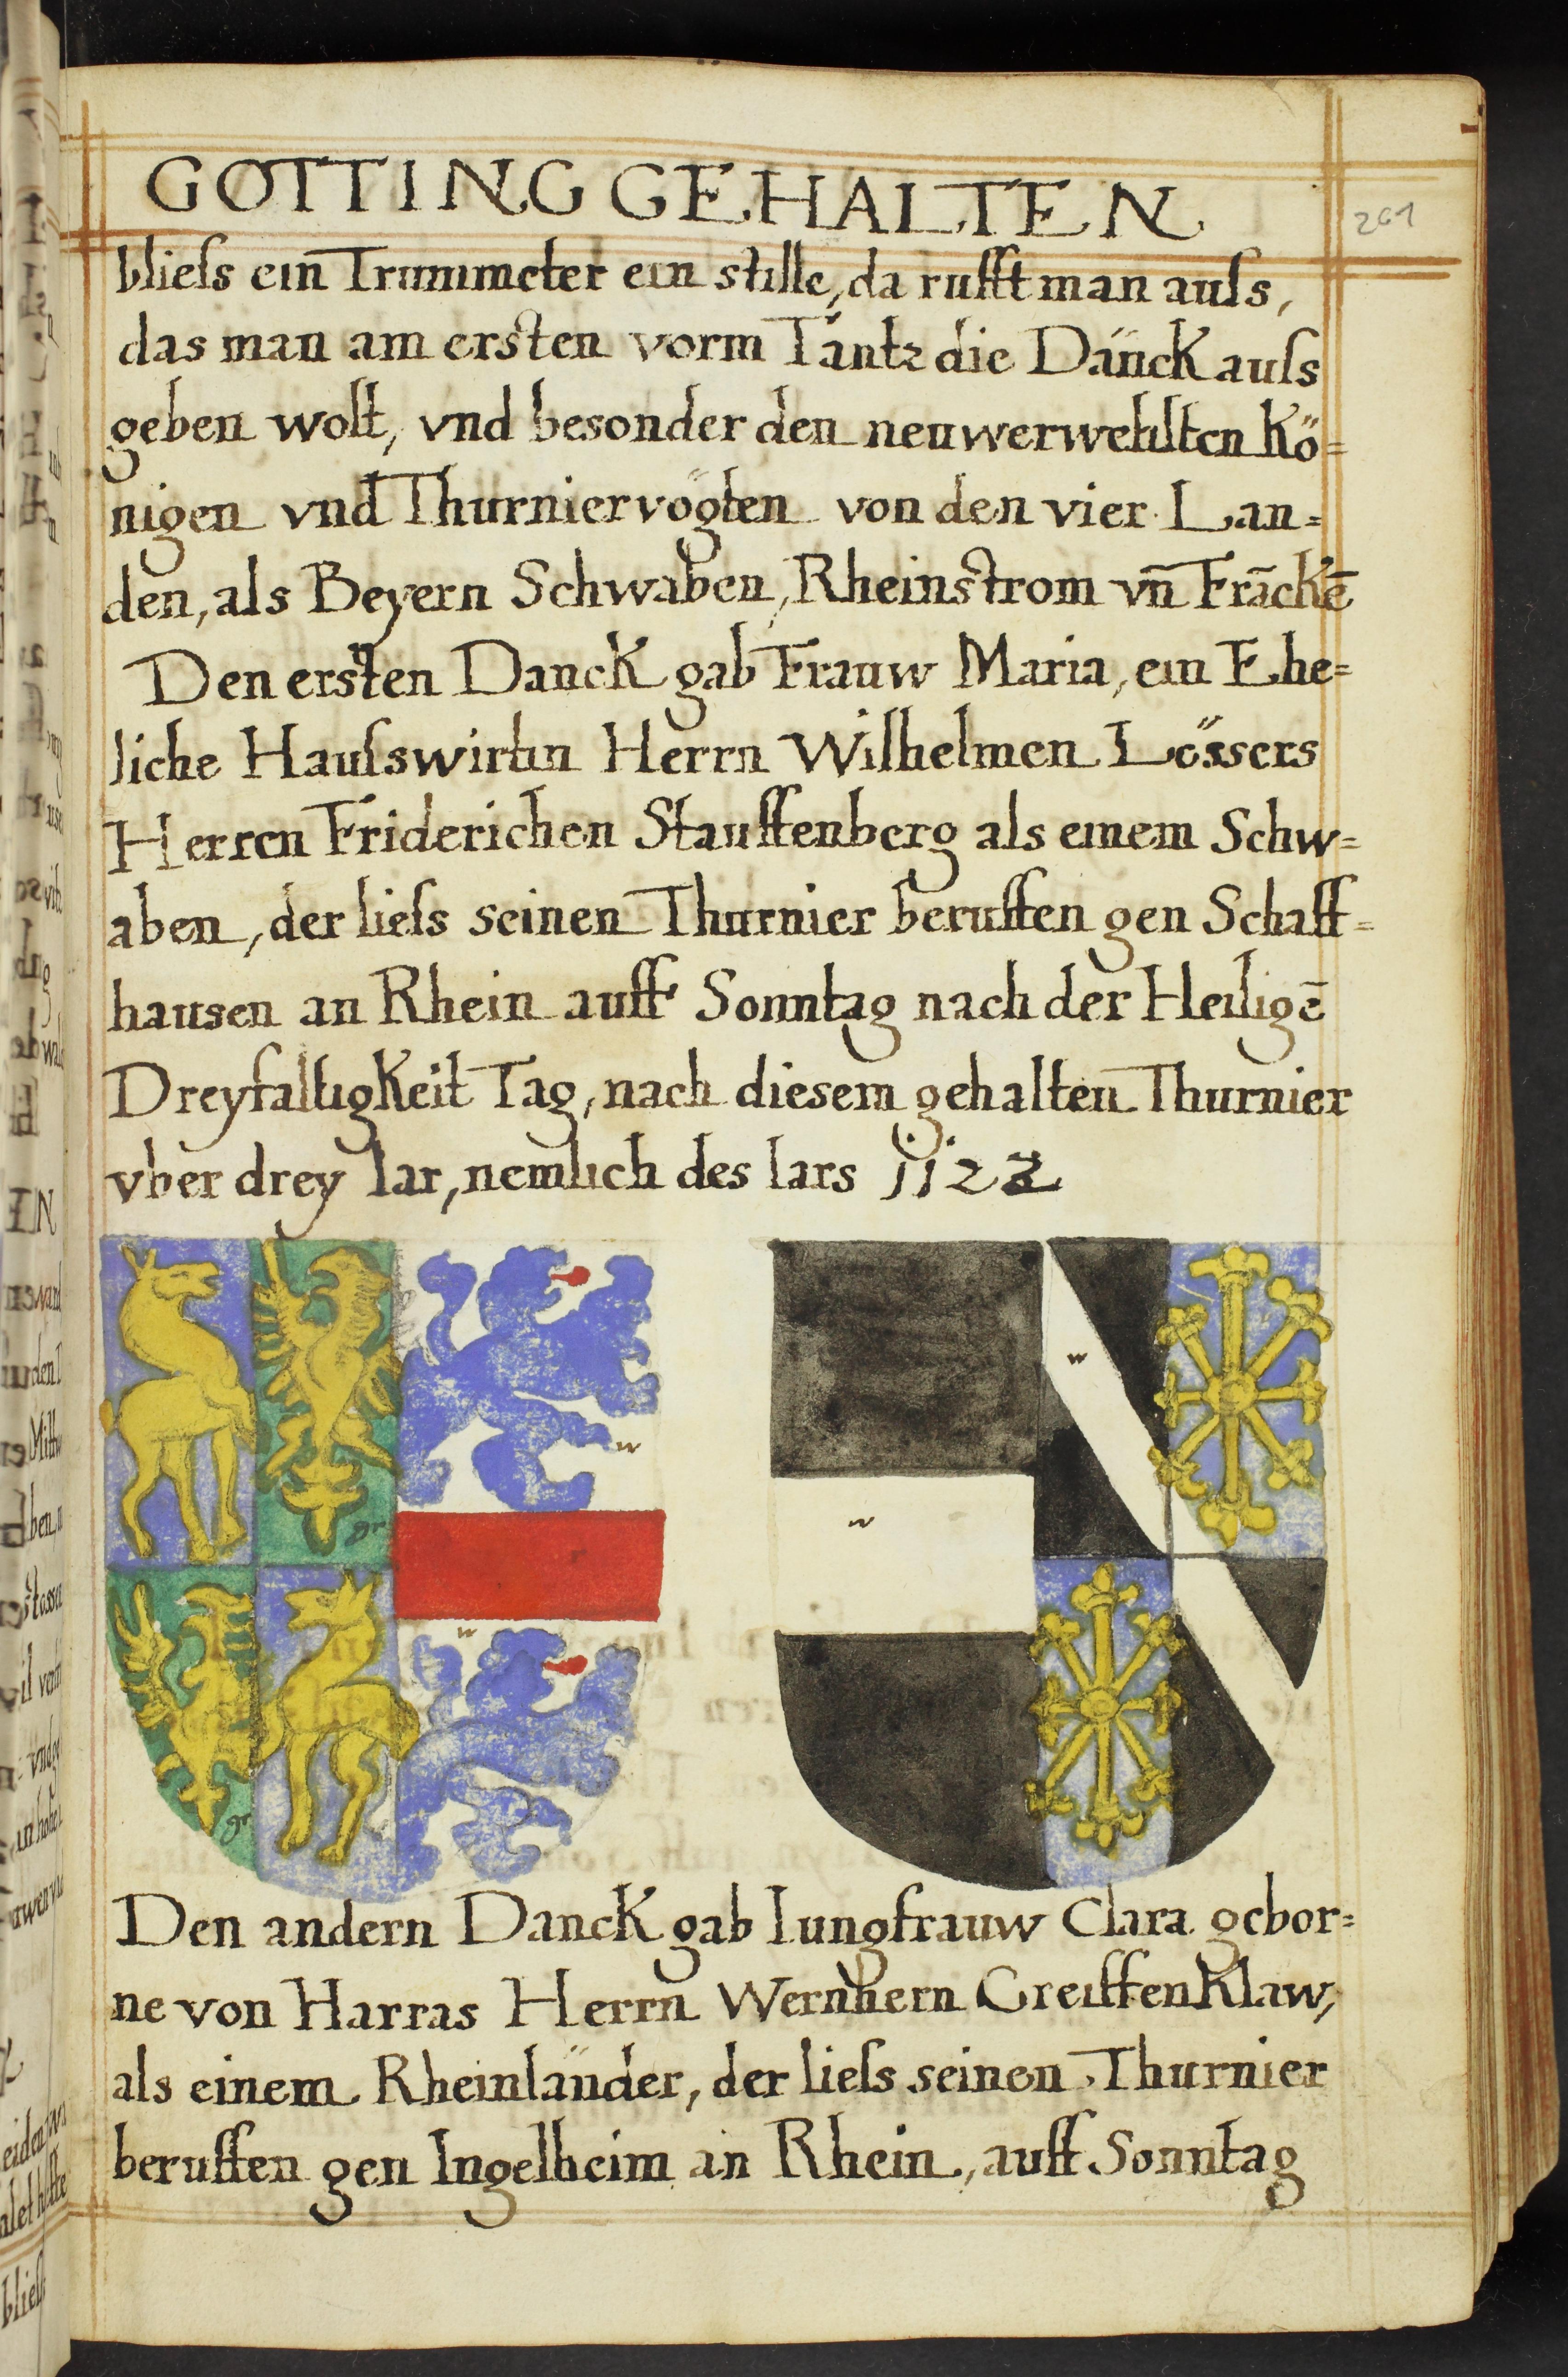 GOTTING GEHALTEN
261
bliess ein Trummeter ein stille, da rufft man auss,
das man am ersten vorm Täntz die Dänck auss
geben wolt, vnd besonder den neuwerwehlten Kö=
nigen vnd Thurniervögten von den vier Lan=
den, als Beyern Schwaben, Rheinstrom vn̄ Frāckē
Den ersten Danck gab Frauw Maria, ein Ehe=
liche Hausswirtin Herrn Wilhelmen Lössers
Herren Friderichen Stauffenberg als einem Schw=
aben, der liess seinen Thurnier beruffen gen Schaff=
hausen an Rhein auff Sonntag nach der Heiligē
Dreyfaltigkeit Tag, nach diesem gehalten Thurnier
vber drey Iar, nemlich des Iars 1122
w
gr
w
gr
w
w
Den andern Danck gab Iungfrauw Clara gebor=
ne von Harras Herrn Wernhern Greiffenklaw,
als einem Rheinländer, der liess seinen Thurnier
beruffen gen Ingelheim an Rhein, auff Sonntag